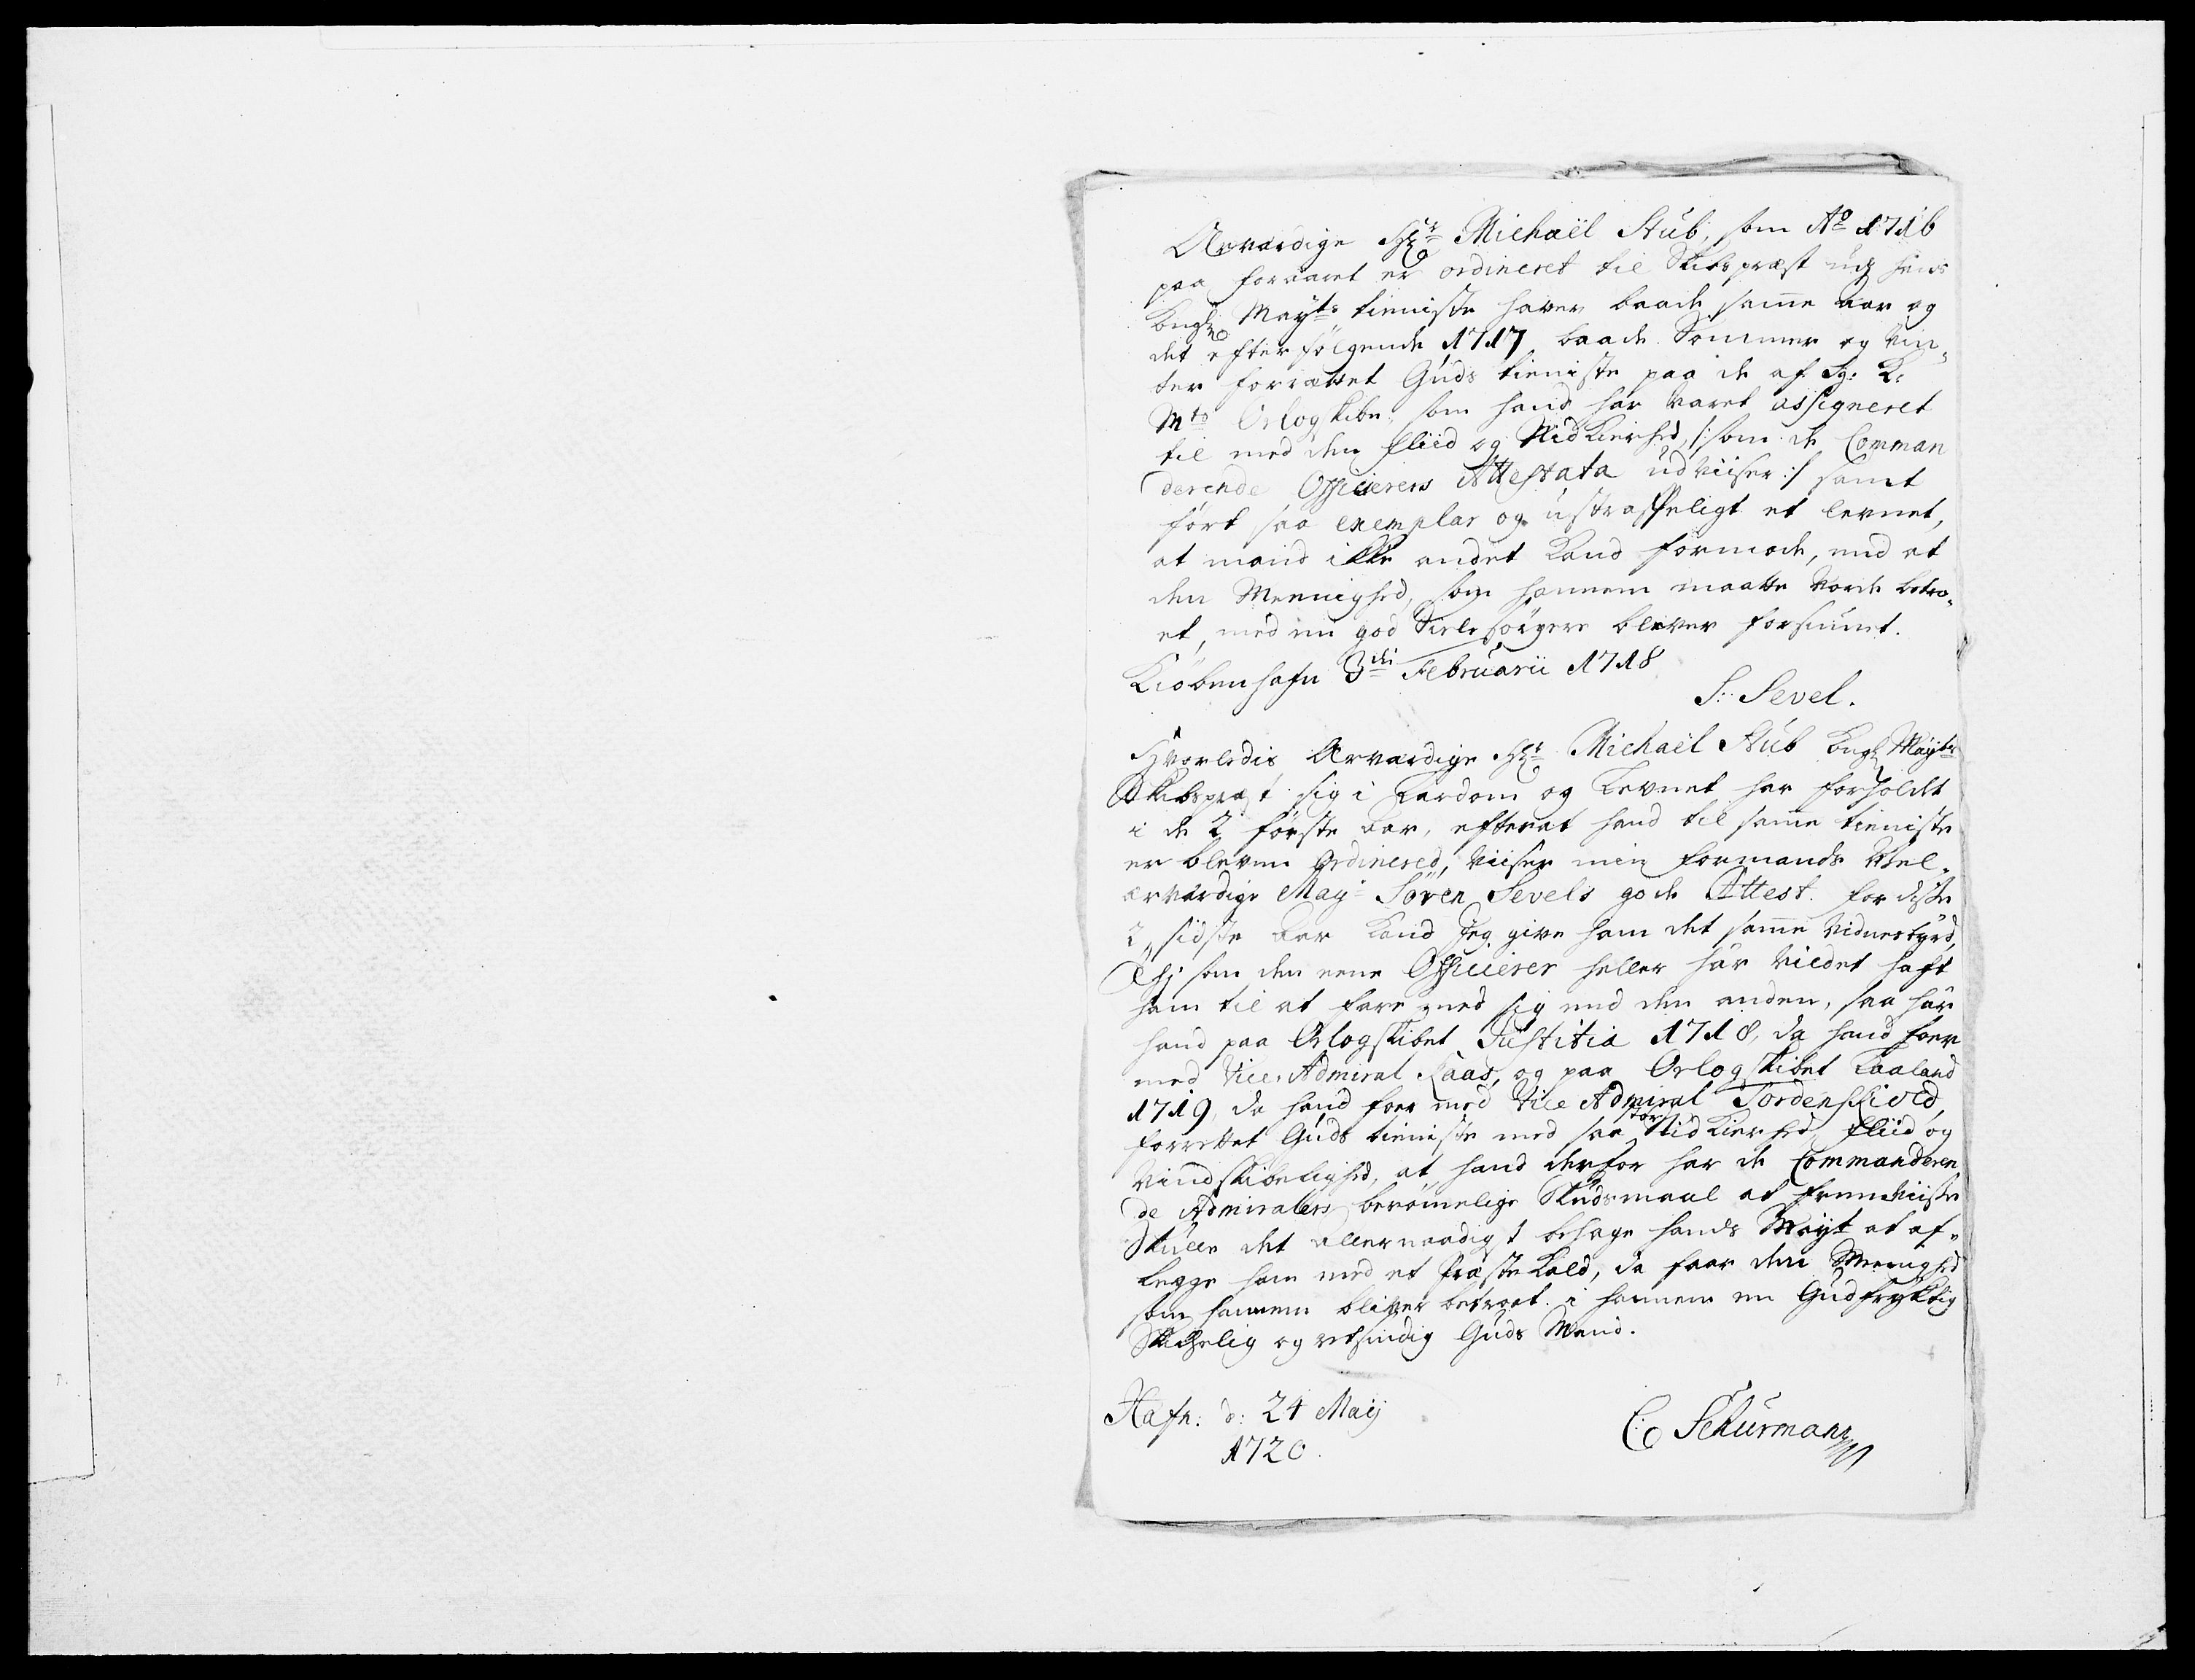 Ærværdige Hr: Michaël Stub, som Ao 1716
paa foraaret er ordineret til Skibspræst udj hans
Kongl: Mayts tieniste haver baade samme aar og
det efterfølgende 1717 baade Sommer og Vin„
ter forrættet Guds tieniste paa de af Hg: K:
Mts Orlogskibe, som hand har været assigneret
til med den fliid og Nidkierhed, /:som de Comman
derende Officierers Attestata udviiser:/ samt
ført saa exemplar og ustraffeligt et levnet,
at mand ikke andet kand formode, end at
den Meenighed, som hannem maatte vorde betro„
et, med en god Sielesørgere bliver forsiunet.
Kiøbenhafn 3die Februarii 1718
S: Sevel.
Hvorledis Ærværdige Hr: Michaël Stub Kongl Mayts
Skibspræst sig i Lærdom og Levnet har forholdt
i de 2 første Aar, efterat hand til samme tieniste
er bleven Ordinered, viiser min formands Vel„
ærværdige Mag: Søren Sevels gode Attest. for disse
2„ sidste Aar kand Jeg give ham det samme Vidnesbyrd,
Thj som den eene Officierer heller har villdet haft
ham til at fare med sig end den anden, saa har
hand paa Orlogskibet Justitia 1718, da hand foer
med Vice-Admiral Kaas, og paa Orlogskibet Laaland
1719, da hand foer med Vice Admiral Tordenskiold,
forrettet Guds tieniste med saa stor Nidkierhed, fliid og
Vindskibelighed, at hand derfor har de Commanderen
de Admiralers berømmelige Skudsmaal at fremviise
Skulle det allernaadigst behage hands Mayt at af„
legge ham med et Præste Kald, da faar den Meenighed
som hannem bliver betroet. i hannem en Gudfrygtig
Skickelig og retsindig Guds Mand.
Hafn: d: 24 Maij
1720.
C Schurmann